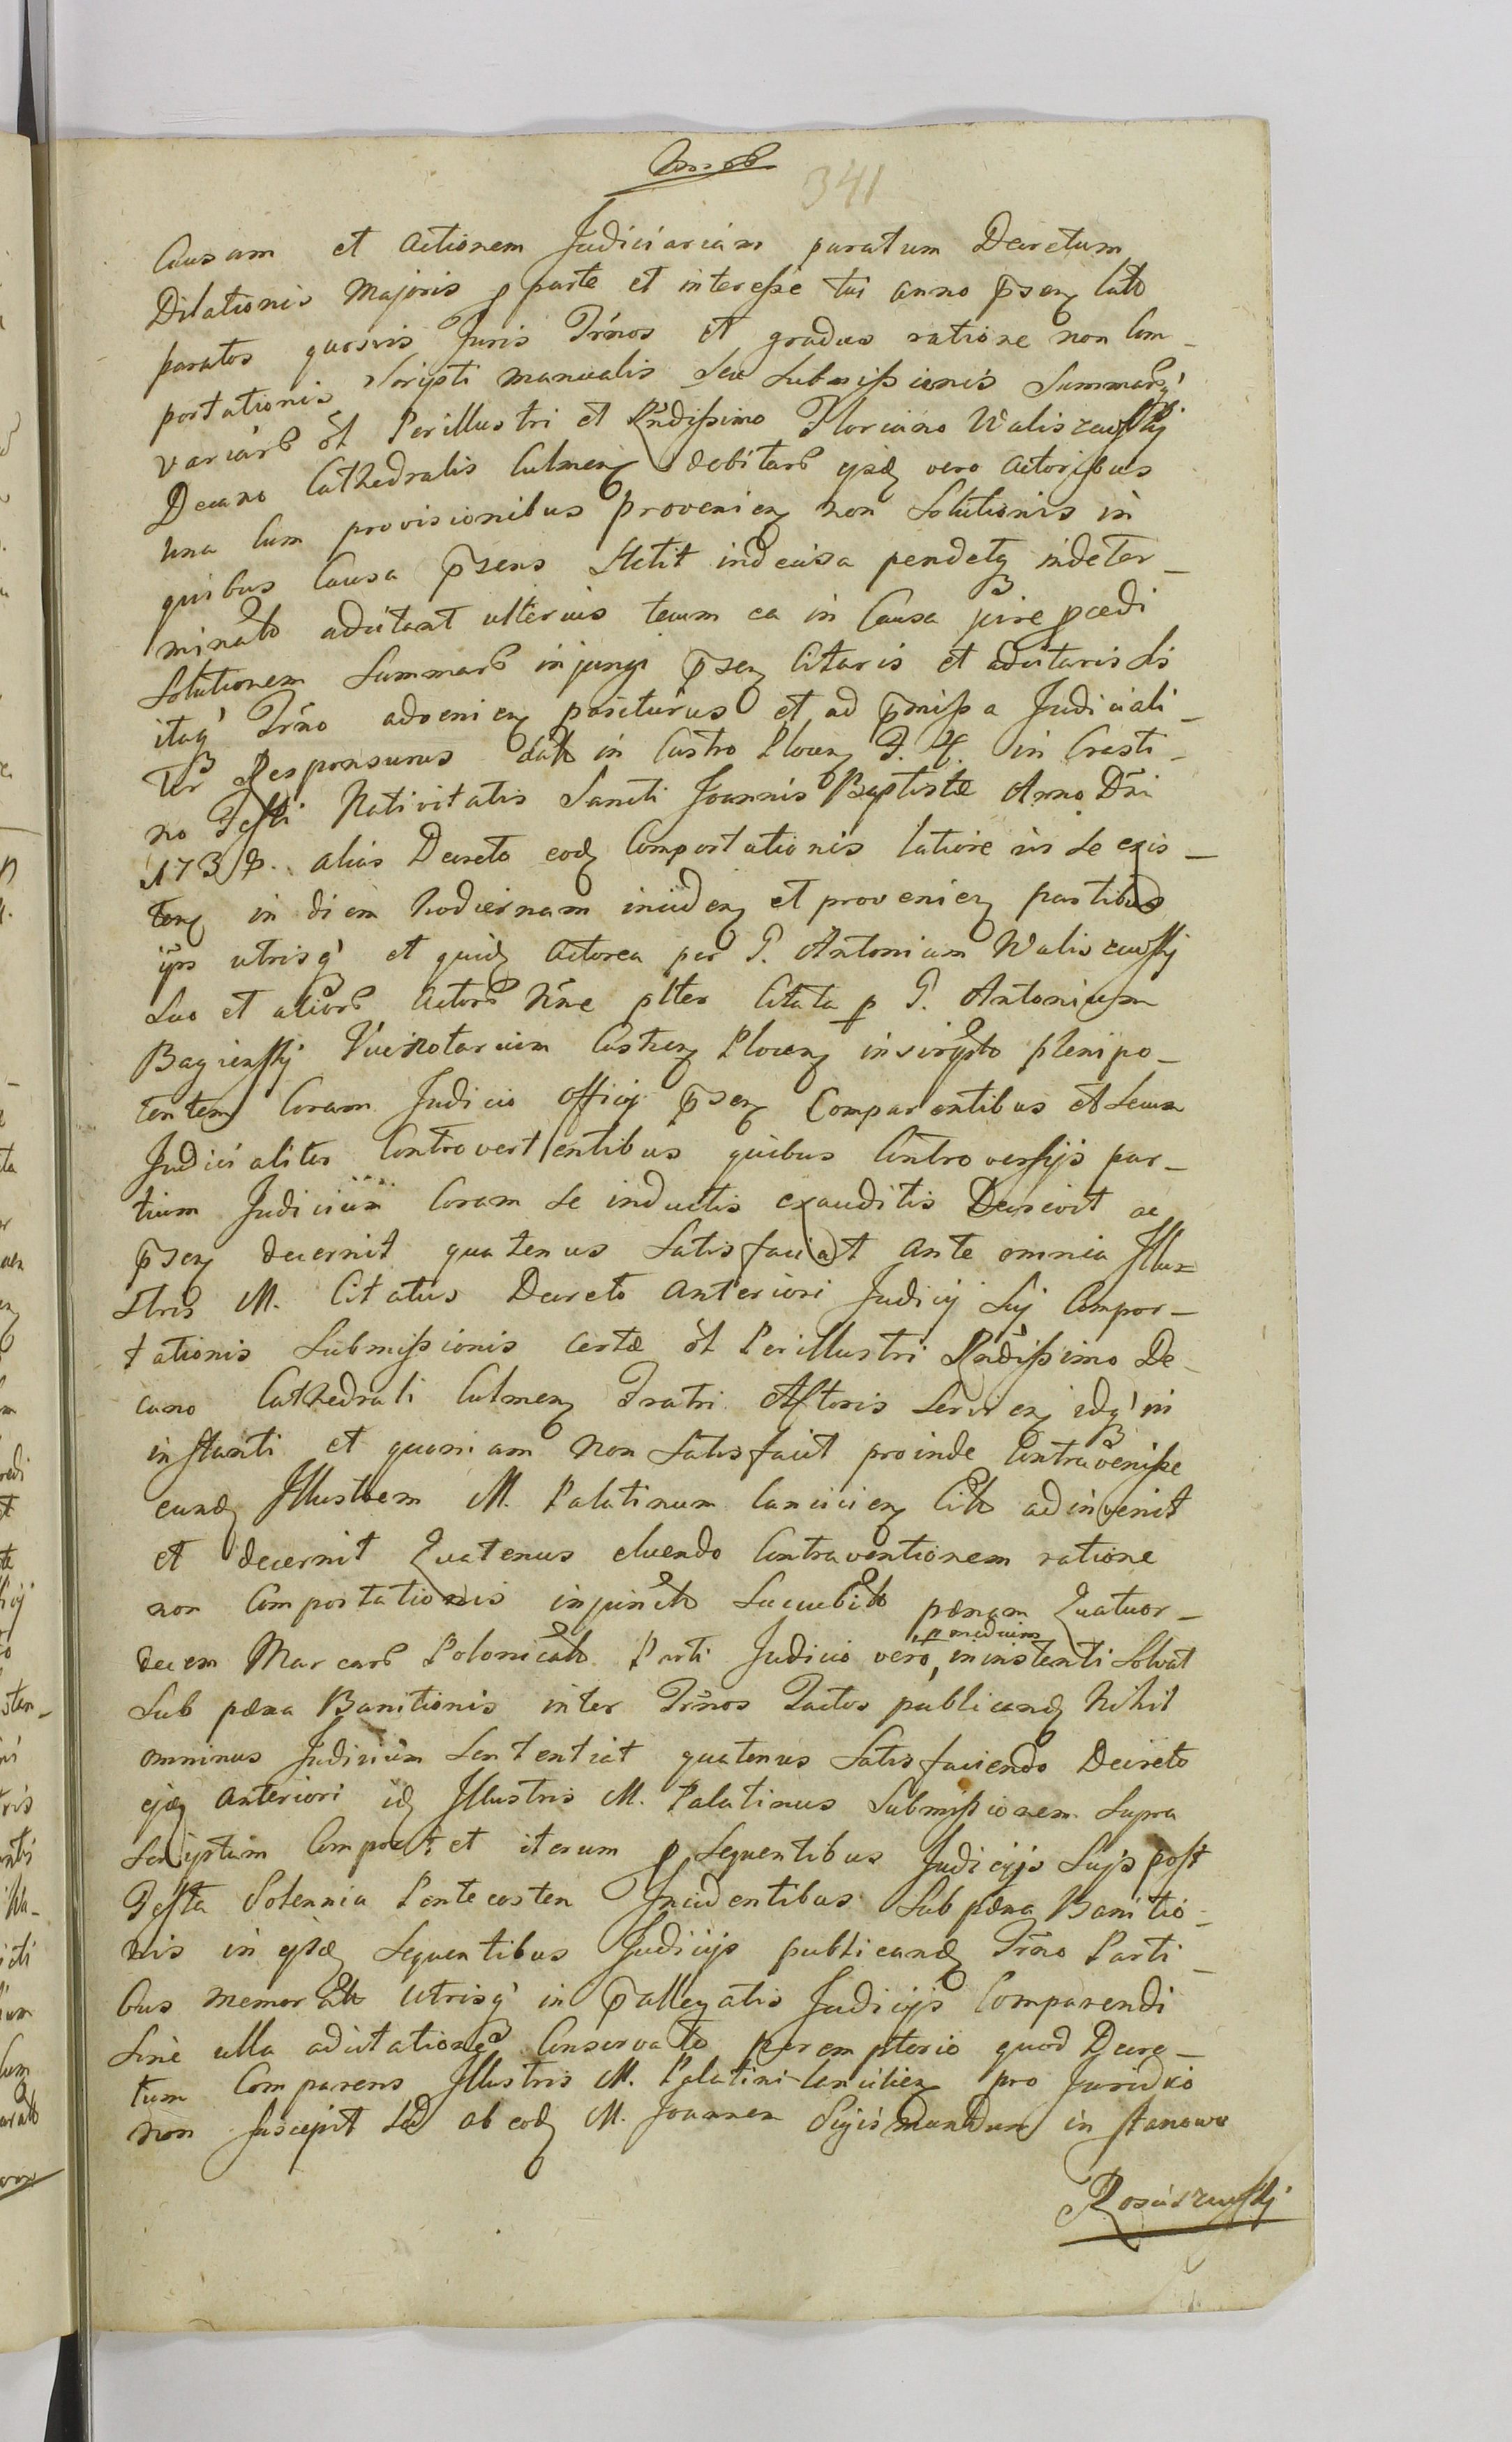 341
Causam et actionem Judiciariam paratum Decretum
Dilationis Majoris p parte et interesse tui anno p̄senȝ lato
paratos quosvis Juris Trnos et gradus ratione non Com-
portationis Scripti manualis seu Submissionis Summarq'
variar ōt Perillustri et Rndissimo Floriano Waliszewskij
Decano Cathedralis Culmenȝ debitar ejsdȝ vero actoribus
una Cum provisionibus provenienȝ non Solutionis in
quibus Causa p̄sens Stetit indecisa pendetqȝ indeter-
minato adcitant ulterius tecum ea in Causa jure p̄cedi
Solutionem Summar injungi p̄senȝ Citaris et adcitaris Sis
itaq' Trno advenienȝ pariturus et ad p̄missa Judiciali-
ter Responsurus datt in Castro Plocenȝ F. 4. in Crasti-
no Festi Nativitatis Sancti Joannis Baptistæ Anno Dni
173 alias Decreto eodȝ Comportationis latiore in se exis-
tenȝ in diem hodiernam incidenȝ et provenienȝ partibus
ijrs utrisq' et quidȝ actorea per G. Antonium Waliszewskij
Suo et alior actor Nne plter Citata p G. Antonium
Bagienskij Vicenotarium Castrenȝ Plocenȝ inscripto plenipo-
tentem Coram Judicio officij p̄senȝ Comparentibus et secum
Judicialiter Controvertentibus quibus Controversijs par-
tium Judicium Coram se inductis exauditis Decrevit ac
p̄senȝ decernit quatenus Satisfaciat ante omnia Illu-
stris M. Citatus Decreto anteriori Judicij Sui Compor-
tationis Submissionis certæ ōt Perillustri Rndissimo De-
cano Cathedrali Culmenȝ Fratri Actoris Servienȝ idq' in
instanti et quoniam non Satisfacit proinde Contravenisse
eundȝ Illustrem M. Palatinum Lancicienȝ Citt adinvenit
et decernit Quatenus eluendo Contraventionem ratione
non Comportationis injunctt Succubitt pænam Quatuor-
decem Marcar Polonicatt Parti Judicio vero p medium in instenti Solvat
Sub pæna Banitionis inter Trnos Tactos publicandȝ Nihil
omninus Judicium Sententiat quatenus Satisfaciendo Decreto
ejsdȝ anteriori idȝ Illustris M. Palatinus Submissionem Supra
Scriptam Comportet et iterum p Sequentibus Judicijs Suis post
Festa Solennia Pentecosten Incidentibus Sub pæna Banitio-
nis in ejsdȝ Sequentibus Judicijs publicandȝ Trno Parti-
bus memoratt Utrisq' in p̄allegatis Judicijs Comparendi
Sine ulla adcitatione Conservato peremptorio quod Decre-
tum Comparens Illustris M. Palatini Lancicienȝ pro Juridico
non Suscepit Sed ab eodȝ M. Joannem Sigismundum in Stanowo
Rosciszewskij